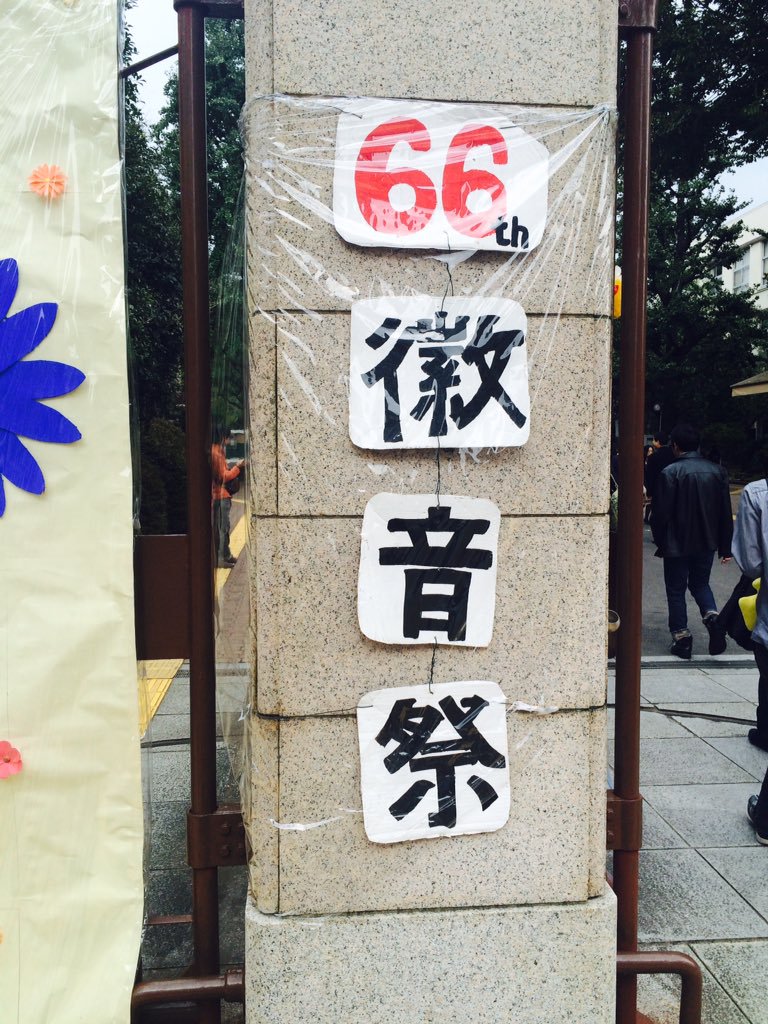 66th
徽
音
祭